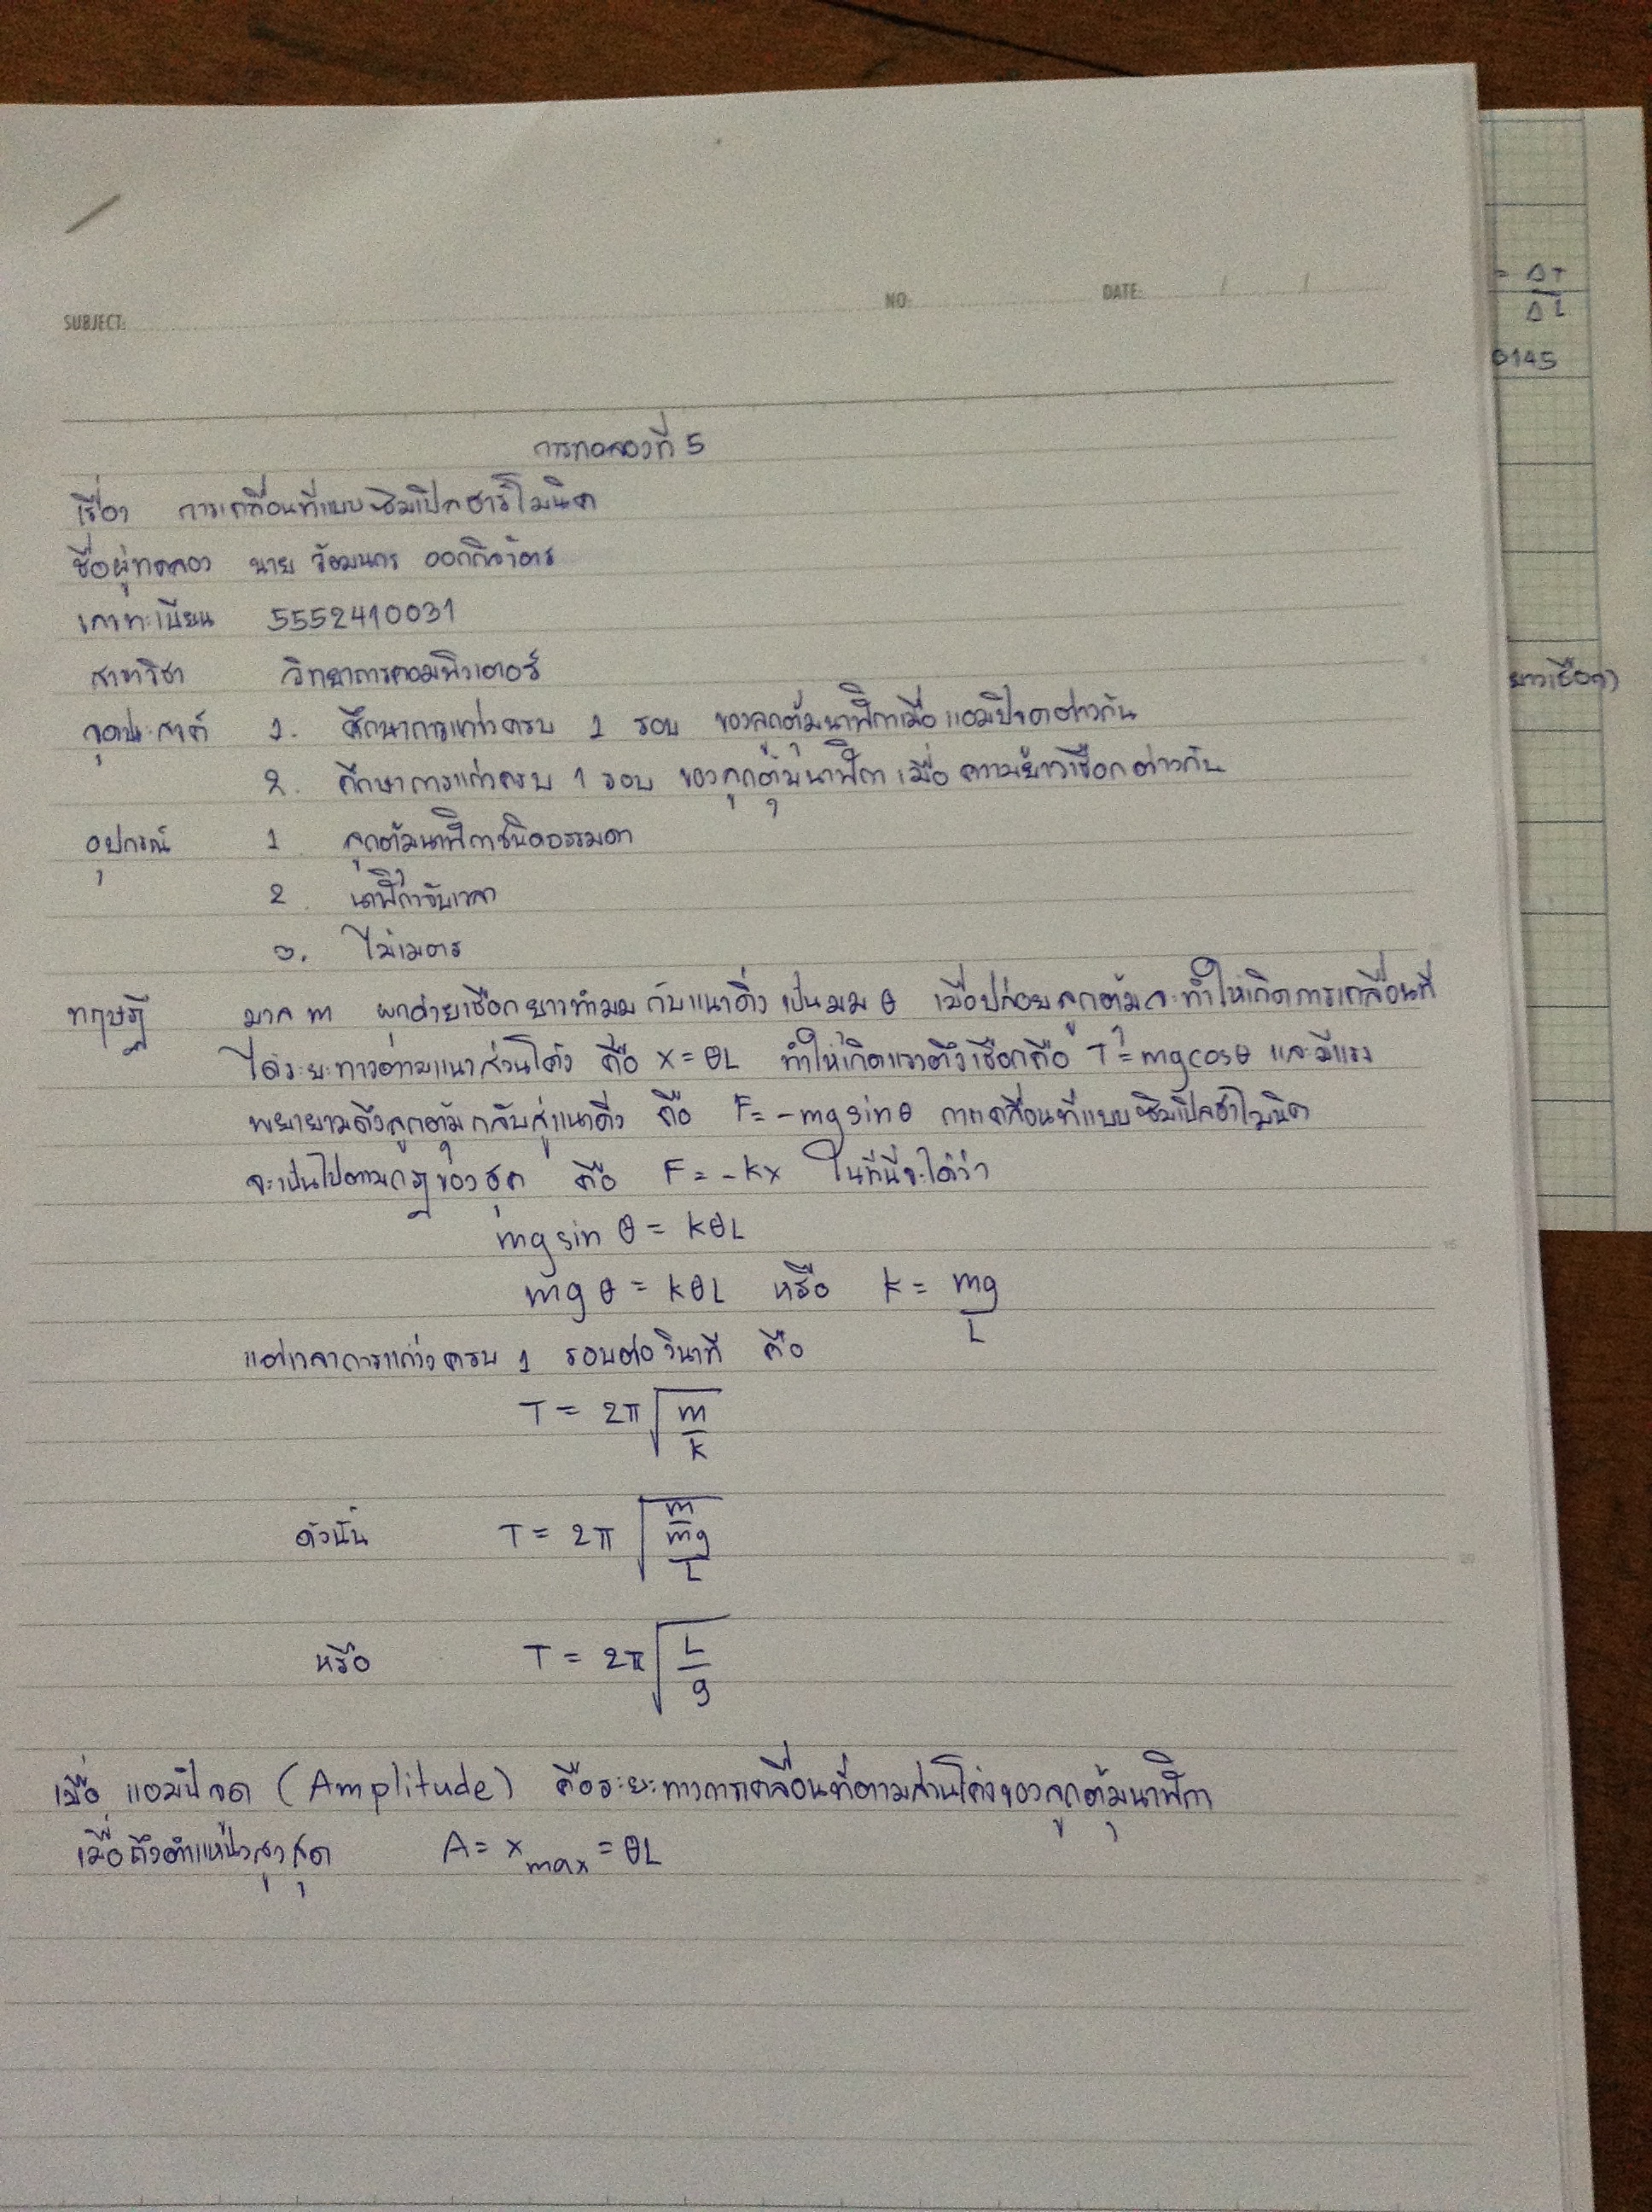 SUBJECT:
NO:
DATE: / /
= ΔT
ΔL
0145
การทดลองที่ 5
เรื่อง การเคลื่อนที่แบบซิมเปิลฮาร์โมนิค
ชื่อผู้ทดลอง นาย
เลขทะเบียน 5552410031
สาขาวิชา วิทยาการคอมพิวเตอร์
จุดประสงค์ 1. ศึกษาการแกว่งครบ 1 รอบ ของลูกตุ้มนาฬิกาเมื่อแอมปิจูดต่างกัน
2. ศึกษาการแกว่งครบ 1 รอบ ของลูกตุ้มนาฬิกา เมื่อ ความยาวเชือกต่างกัน
อุปกรณ์ 1 ลูกตุ้มนาฬิกาชนิดธรรมดา
2. นาฬิกาจับเวลา
3. ไม้เมตร
ทฤษฎี มวล m ผูกด้ายเชือกยาวทำมุมกับแนวดิ่ง เป็นมุม θ เมื่อปล่อยลูกตุ้มจะทำให้เกิดการเคลื่อนที่
ได้ระยะทางตามแนวส่วนโค้ง คือ x = θL ทำให้เกิดแรงตึงเชือกคือ T' = mg cosθ และมีแรง
พยายามดึงลูกตุ้มกลับสู่แนวดิ่ง คือ F = -mg sinθ การเคลื่อนที่แบบซิมเปิลฮาโมนิค
จะเป็นไปตามกฎของฮุค คือ F = -kx ในที่นี้จะได้ว่า
mg sin θ = kθL
mg θ = kθL หรือ k = mg/L
แต่เวลาการแกว่งครบ 1 รอบต่อวินาที คือ
T = 2π √(m/k)
ดังนั้น T = 2π √(m/(mg/L))
หรือ T = 2π √(L/g)
เมื่อ แอมปิจูด (Amplitude) คือระยะทางการเคลื่อนที่ตามส่วนโค้งของลูกตุ้มนาฬิกา
เมื่อถึงตำแหน่งสูงสุด A = x max = θL